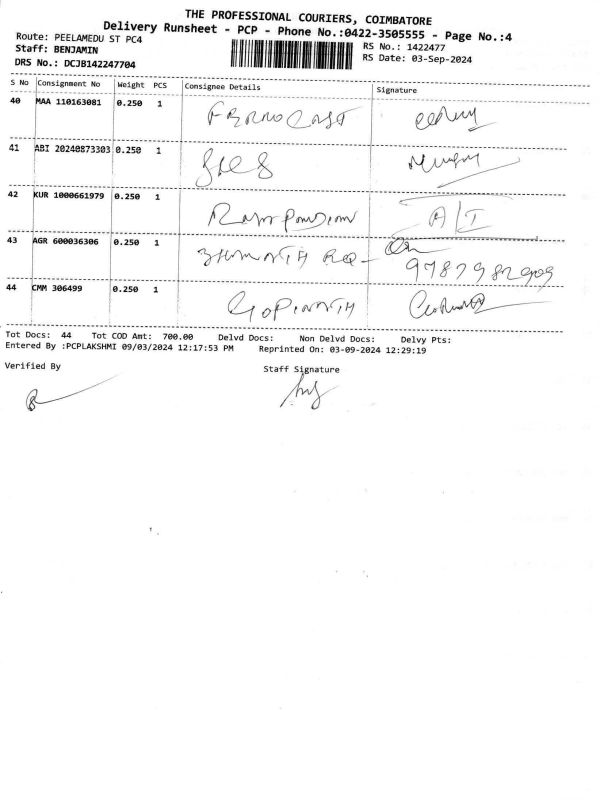 THE PROFESSIONAL COURIERS, COIMBATORE
Delivery Runsheet - PCP - Phone No.:0422-3505555 - Page No.:4
Route: PEELAMEDU ST PC4
Staff: BENJAMIN
DRS No.: DCJB142247704
RS No.: 1422477
RS Date: 03-Sep-2024
S No Consignment No Weight PCS Consignee Details Signature
40 MAA 110163081 0.250 1
41 ABI 20240873303 0.250 1
42 KUR 1000661979 0.250 1 Ram Pandian A/I
43 AGR 600036306 0.250 1
44 CMM 306499 0.250 1 GOPINATH
Tot Docs: 44 Tot COD Amt: 700.00 Delvd Docs: Non Delvd Docs: Delvy Pts:
Entered By :PCPLAKSHMI 09/03/2024 12:17:53 PM Reprinted On: 03-09-2024 12:29:19
Verified By
Staff Signature